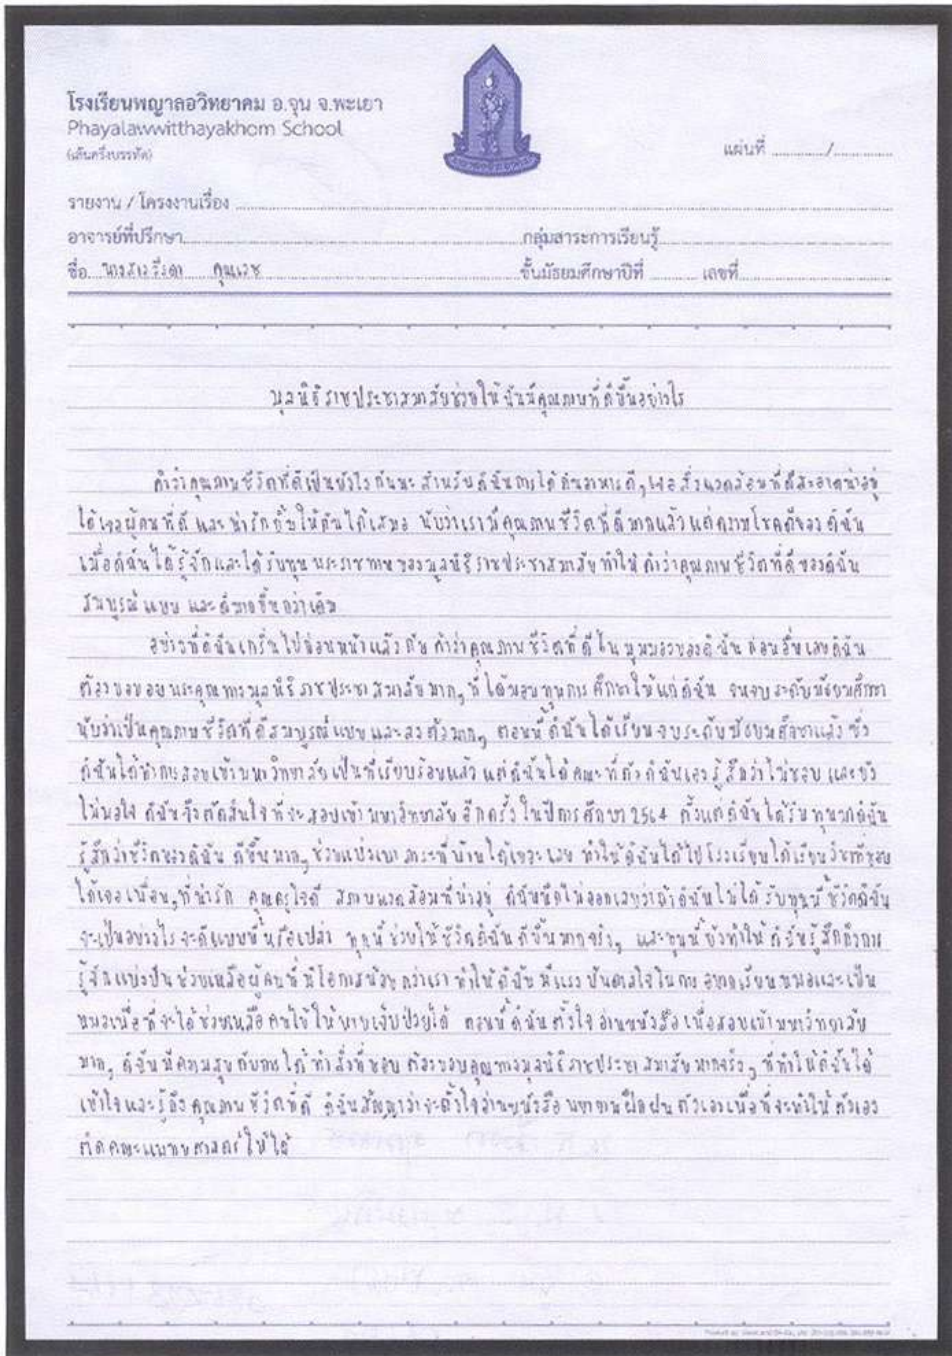 โรงเรียนพญาลอวิทยาคม อ.จุน จ.พะเยา
Phayalawwitthayakhom School
(เส้นครึ่งบรรทัด)
แผ่นที่ ............/............
รายงาน / โครงงานเรื่อง
อาจารย์ที่ปรึกษา กลุ่มสาระการเรียนรู้
ชื่อ นางสาว คุณเวช ชั้นมัธยมศึกษาปีที่ เลขที่
มูลนิธิราชประชาสมาสัยช่วยให้ฉันมีคุณภาพที่ดีขึ้นอย่างไร
คำว่าคุณภาพชีวิตที่ดีเป็นยังไงกันนะ สำหรับดิฉันการได้กินอาหารดีๆ เจอสิ่งแวดล้อมที่ดีสะอาดน่าอยู่
ได้เจอผู้คนที่ดี และน่ารักยิ้มให้กันได้เสมอ นับว่าเรามีคุณภาพชีวิตที่ดีมากแล้ว แต่ความโชคดีของดิฉัน
เมื่อดิฉันได้รู้จักและได้รับทุนพระราชทานของมูลนิธิราชประชาสมาสัย ทำให้คำว่าคุณภาพชีวิตที่ดีของดิฉัน
สมบูรณ์แบบ และดีมากขึ้นกว่าเดิม
อย่างที่ดิฉันเกริ่นไปก่อนหน้าแล้ว กับคำว่าคุณภาพชีวิตที่ดีในมุมมองของดิฉัน ก่อนอื่นเลยดิฉัน
ต้องขอขอบพระคุณทางมูลนิธิราชประชาสมาสัยมากๆ ที่ได้มอบทุนการศึกษาให้แก่ดิฉัน จนจบระดับมัธยมศึกษา
นับว่าเป็นคุณภาพชีวิตที่ดีสมบูรณ์แบบและลงตัวมากๆ ตอนนี้ดิฉันได้เรียนจบระดับมัธยมศึกษาแล้ว ซึ่ง
ดิฉันได้ทำการสอบเข้ามหาวิทยาลัยเป็นที่เรียบร้อยแล้ว แต่ดิฉันได้คณะที่ตัวดิฉันเองรู้สึกว่าไม่ชอบ และยัง
ไม่พอใจ ดิฉันจึงตัดสินใจที่จะสอบเข้ามหาวิทยาลัยอีกครั้ง ในปีการศึกษา 2564 ตั้งแต่ดิฉันได้รับทุนมาดิฉัน
รู้สึกว่าชีวิตของดิฉัน ดีขึ้นมากๆ ช่วยแบ่งเบาภาระที่บ้านได้เยอะเลย ทำให้ดิฉันได้ไปโรงเรียนได้เรียนวิชาที่ชอบ
ได้เจอเพื่อนๆที่น่ารัก คุณครูใจดี สภาพแวดล้อมที่น่าอยู่ ดิฉันนึกไม่ออกเลยว่าถ้าดิฉันไม่ได้รับทุนนี้ ชีวิตดิฉัน
จะเป็นอย่างไร จะดีแบบนี้หรือเปล่า ทุนนี้ช่วยให้ชีวิตดิฉันดีขึ้นมากจริงๆ และทุนนี้ยังทำให้ดิฉันรู้สึกถึงการ
รู้จักแบ่งปัน ช่วยเหลือผู้คนที่มีโอกาสน้อยกว่าเรา ทำให้ดิฉันมีแรงบันดาลใจในการอยากเรียนหมอและเป็น
หมอเพื่อที่จะได้ช่วยเหลือคนไข้ให้หายเจ็บป่วยได้ ตอนนี้ดิฉันตั้งใจอ่านหนังสือเพื่อสอบเข้ามหาวิทยาลัย
มากๆ ดิฉันมีความสุขกับการได้ทำสิ่งที่ชอบ ต้องขอบคุณทางมูลนิธิราชประชาสมาสัยมากจริงๆ ที่ทำให้ดิฉันได้
เข้าใจและรู้ถึงคุณภาพชีวิตที่ดี ดิฉันสัญญาว่าจะตั้งใจอ่านหนังสือ พยายามฝึกฝนตัวเองเพื่อที่จะทำให้ตัวเอง
ติดคณะแพทยศาสตร์ให้ได้